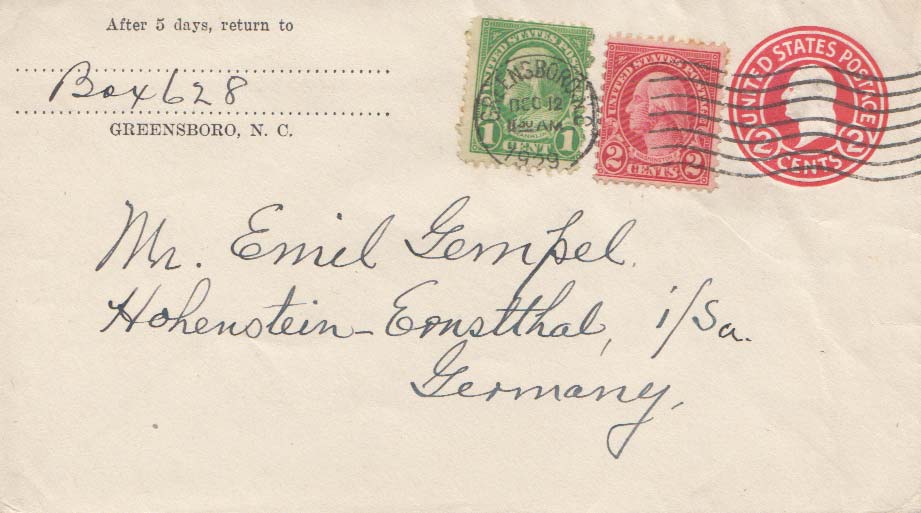 After 5 days, return to
Box 628
GREENSBORO, N. C.
UNITED STATES POSTAGE
FRANKLIN
1 CENT 1
GREENSBORO, N.C.
DEC 12
AM
1929
UNITED STATES POSTAGE
2 CENTS 2
UNITED STATES POSTAGE
2 CENTS 2
Mr. Emil Gempel.
Hohenstein-Ernstthal, i/Sa.
Germany,